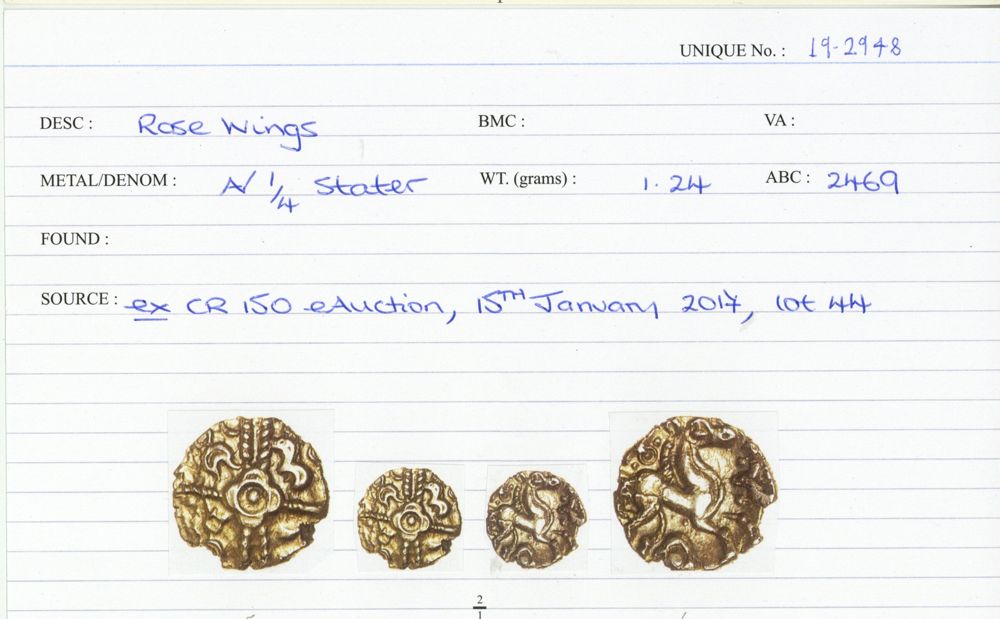 UNIQUE No. : 19-2948
DESC : Rose Wings BMC : VA :
METAL/DENOM : A/ 1/4 Stater WT. (grams) : 1.24 ABC : 2469
FOUND :
SOURCE : ex CR 150 eAuction, 15TH January 2017, lot 44
2
1